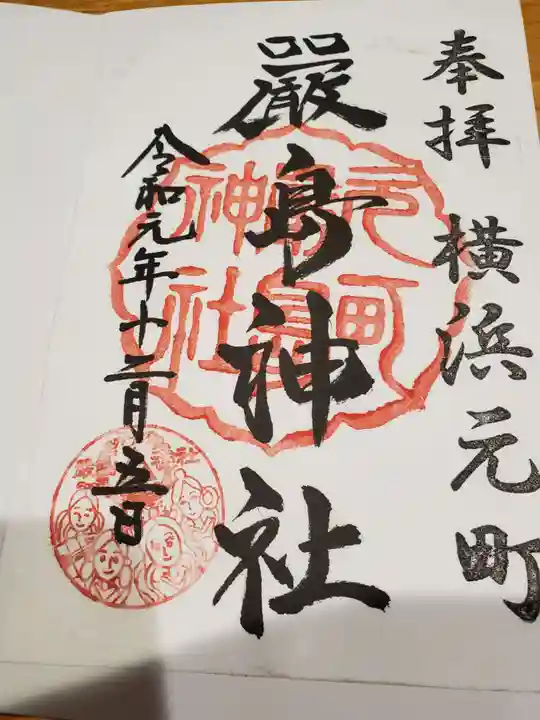 奉拝 横浜元町
嚴島神社
元町
嶋神社
令和元年十二月五日